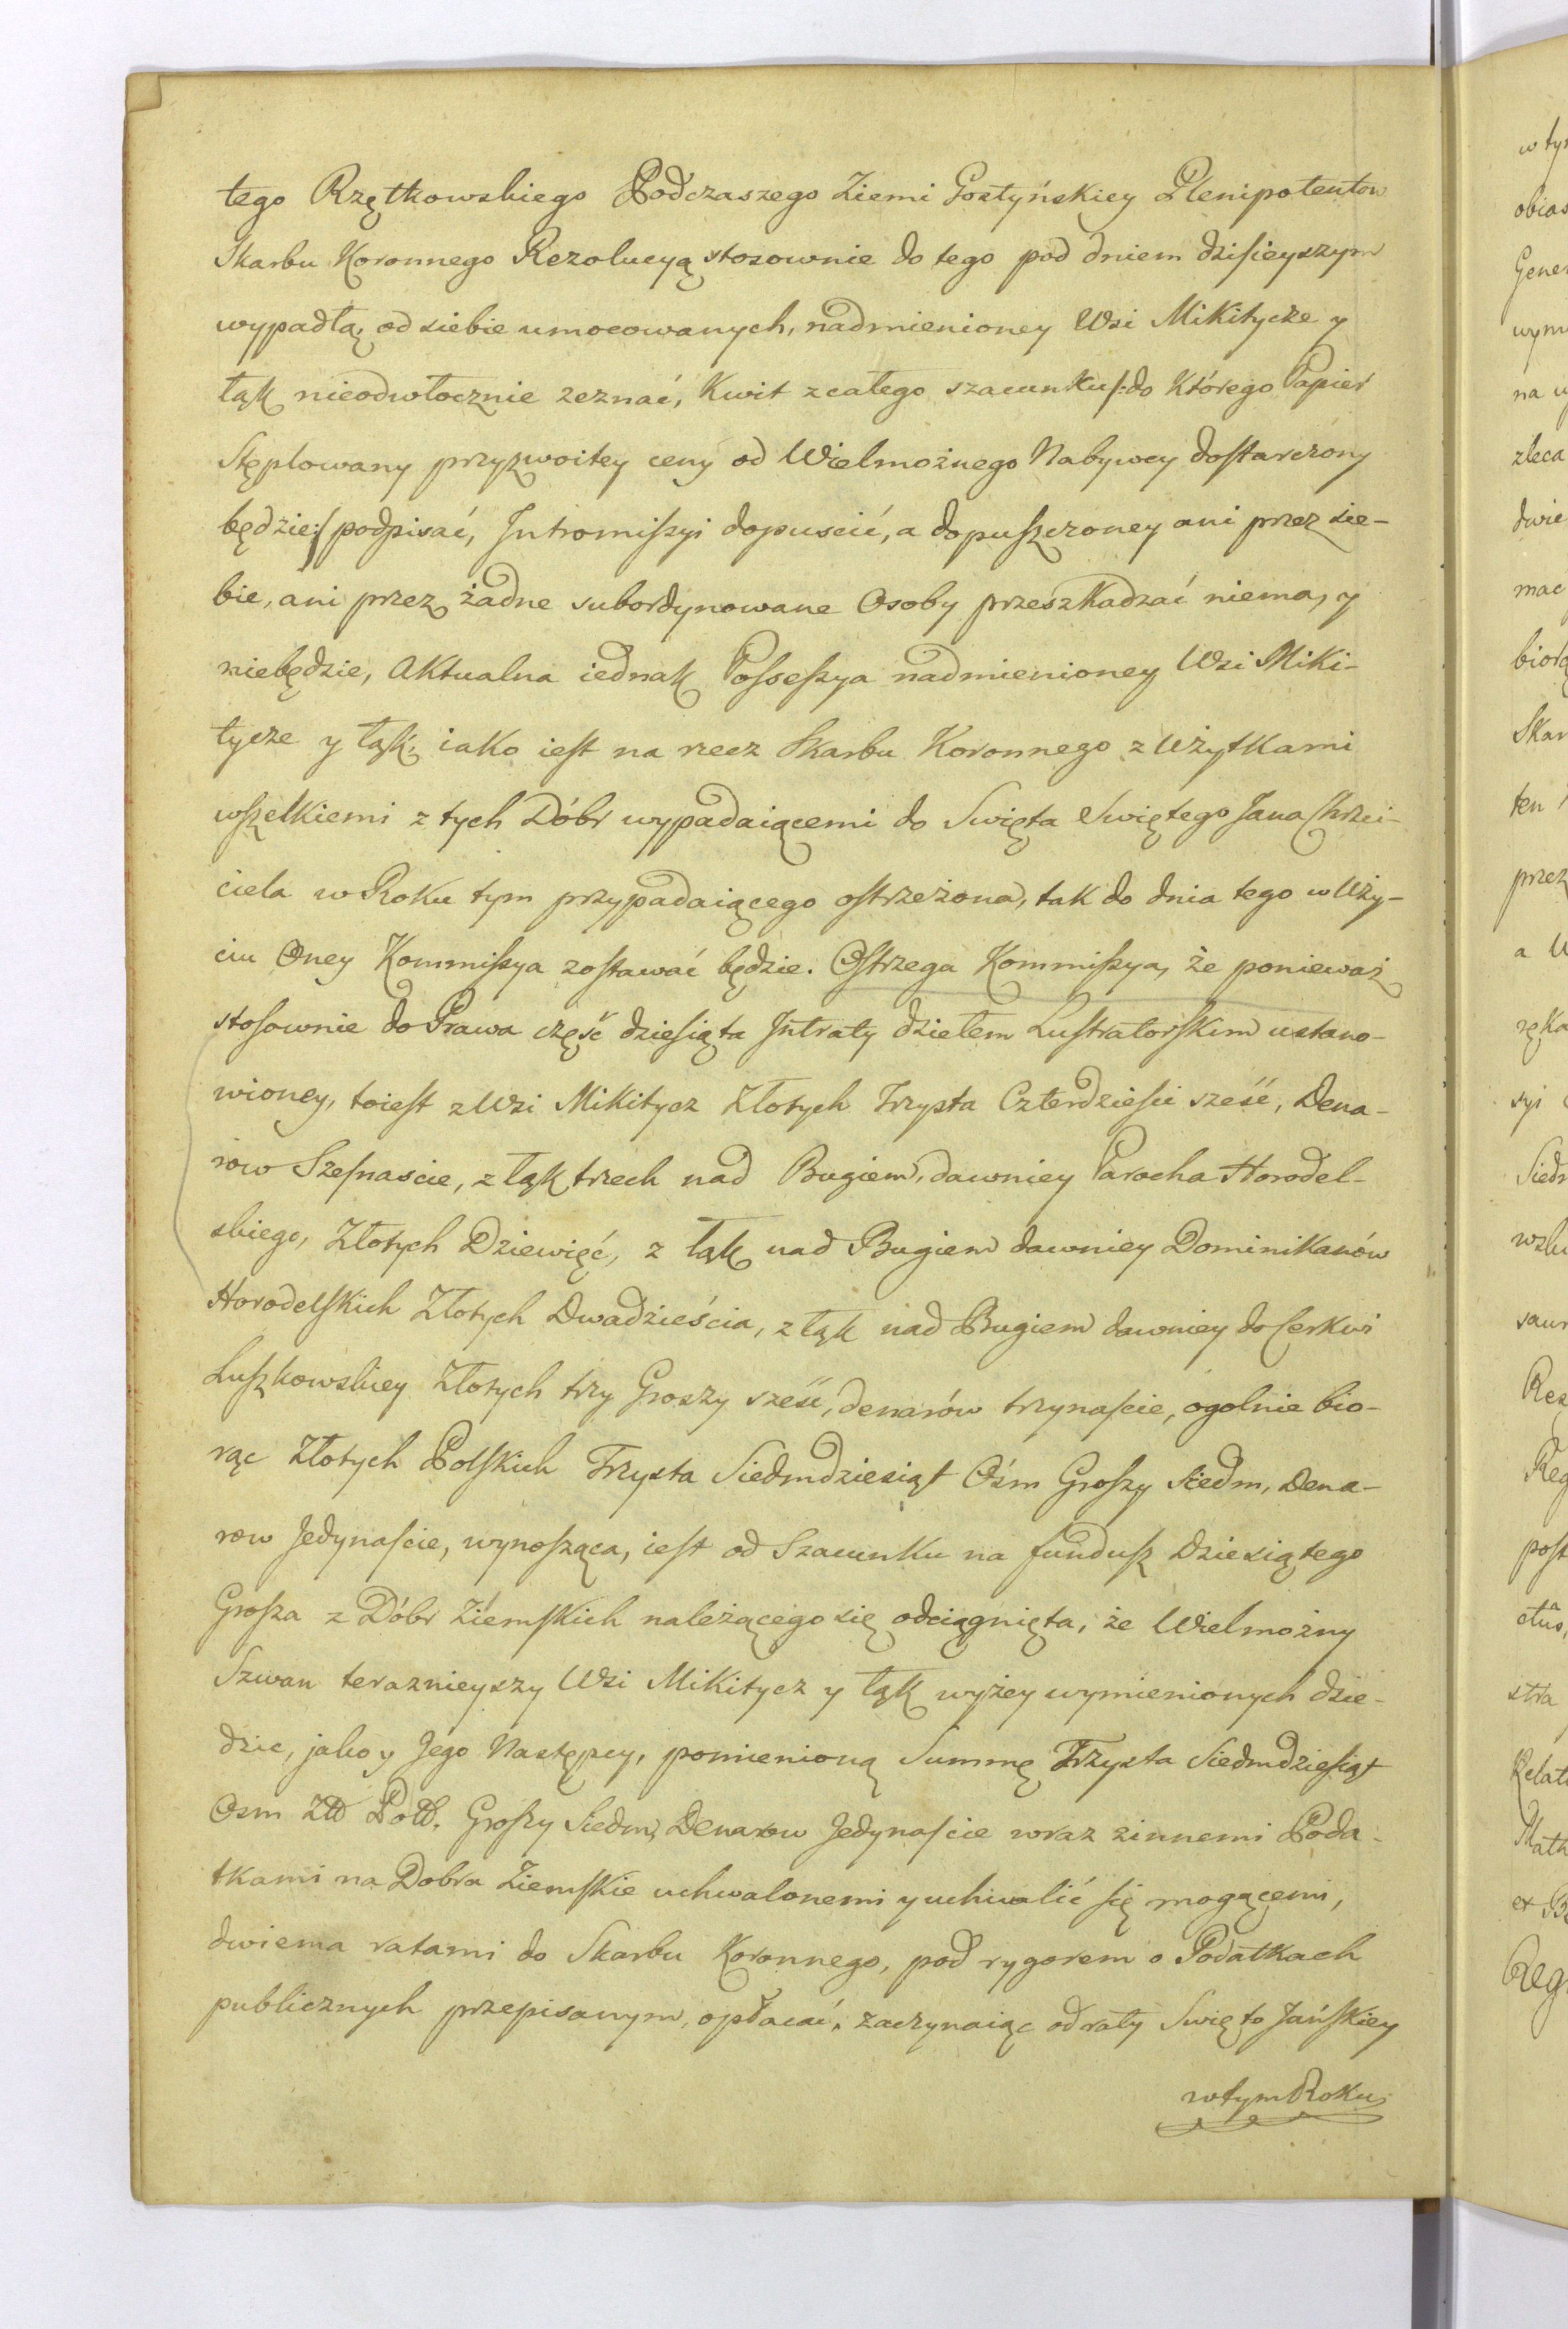 tego Rzętkowskiego Podczaszego Ziemi Gostyńskiey Plenipotentow
Skarbu Koronnego Rezolucyą stosownie do tego pod dniem dzisieyszym
wypadłą, od siebie umocowanych, nadmienioney Wsi Mikitycze y
łąk nieodwłocznie zeznać, Kwit z całego szacunku /: do Którego Papier
Stęplowany przyzwoitey ceny od Wielmożnego Nabywcy dostarczony
będzie :/ podpisać, Intromissyi dopuscić, a dopuszczoney ani przez sie-
bie, ani przez żadne subordynowane Osoby przeszkadzać niema, y
niebędzie, Aktualna iednak Possessya nadmienioney Wsi Miki-
tycze y łąk, iako iest na rzecz Skarbu Koronnego z Użytkami
wszelkiemi z tych Dóbr wypadaiącemi do Swięta Swiętego Jana Chrzci-
ciela w Roku tym przypadaiącego ostrzeżona, tak do dnia tego w Uży-
ciu Oney Kommissya zostawać będzie. Ostrzega Kommissya, że ponieważ
stosownie do Prawa część dziesiąta Intraty dziełem Lustratorskim ustano-
wioney, toiest z Wsi Mikitycz Złotych Trzysta Czterdzieści sześć, Dena-
row Szesnascie, z łąk trzech nad Bugiem, dawniey Parocha Horodel-
skiego, Złotych Dziewięć, z łąk nad Bugiem dawniey Dominikanów
Horodelskich Złotych Dwadzieścia, z łąk nad Bugiem dawniey do Cerkwi
Luszkowskiey Złotych trzy Groszy sześć, denarów trzynascie, ogolnie bio-
rąc Złotych Polskich Trzysta Siedmdziesiąt Ośm Groszy Siedm, Dena-
row Jedynascie, wynosząca, iest od Szacunku na fundusz Dziesiątego
Grosza z Dóbr Ziemskich należącego się odciągnięta, że Wielmożny
Szwan teraznieyszy Wsi Mikitycz y łąk wyżey wymienionych dzie-
dzic, jako y Jego Następcy, pomienioną Summę Trzysta Siedmdziesiąt
Osm Złł Poll. Groszy Siedm, Denarow Jedynascie wraz z innemi Poda-
tkami na Dobra Ziemskie uchwalonemi y uchwalić się mogącemi,
dwiema ratami do Skarbu Koronnego, pod rygorem o Podatkach
publicznych przepisanym, opłacać, zaczynaiąc od raty Swięto Jańskiey
w tym Roku